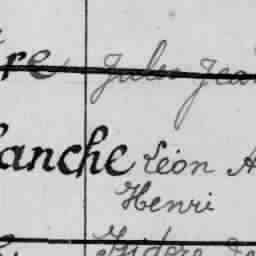 re Jules Jean
anche Léon A
Henri
Isidore